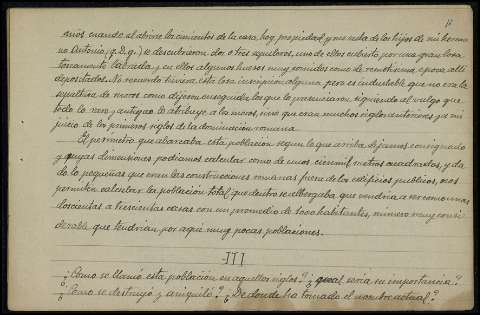 11
mos cuando al abrirse los cimientos de la casa, hoy propiedad y moranda de los hijos de mi herma
no Antonio, (q. D. g.) se descubrieron dos o tres sepulcros, uno de ellos cubierto por una gran losa
toscamente labrada, y en ellos algunos huesos muy roidos como de remotísima época allí
depositados. No recuerdo tuviera esta losa inscripcion alguna, pero es indudable que no era la
sepultura de moros como dijeron enseguida los que lo presenciaron, siguiendo al vulgo que
todo lo raro y antiguo lo atribuye a los moros, sino que eran muchos siglos anteriores, y a mi
juicio de los primeros siglos de la dominacion romana.
El perimetro que abarcaba esta poblacion segun lo que arriba dejamos consignado
y cuyas dimensiones podiamos calcular como de unos cien mil metros cuadrados, y da
do lo pequeñas que eran las construcciones romanas fuera de los edificios publicos, nos
permiten calcular la poblacion total que dentro se albergaba que vendria a ser como unas
doscientas a trescientas casas con un promedio de 1000 habitantes, numero muy consi
derable que tendrian por aquí muy pocas poblaciones.
III
¿Como se llamó esta poblacion en aquellos siglos? ¿qual seria su importancia?
¿Como se destruyó y aniquiló? ¿De donde ha tomado el nombre actual?